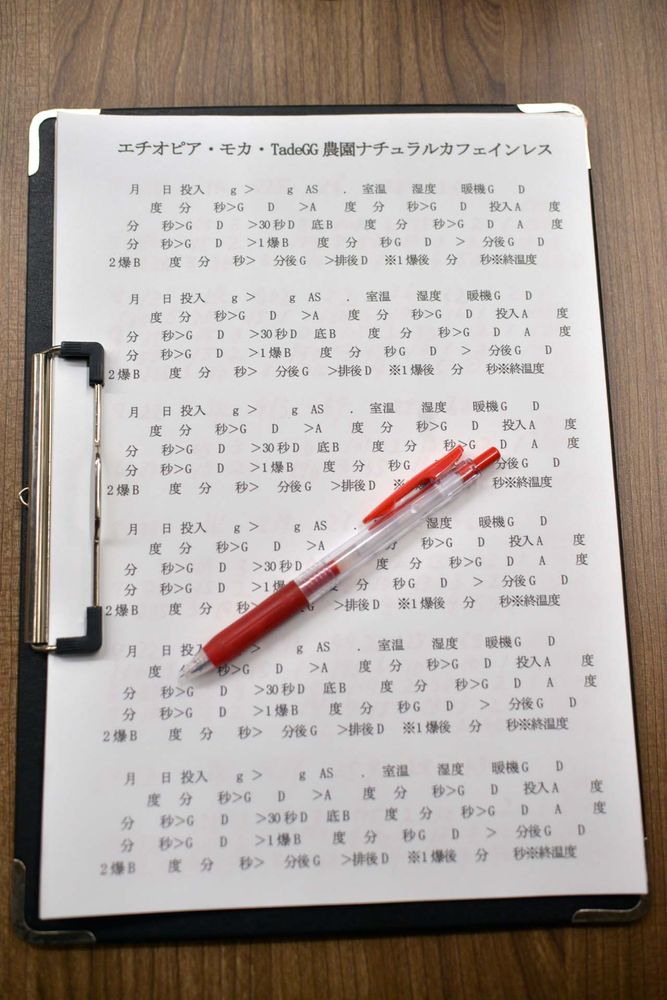 エチオピア・モカ・TadeGG 農園ナチュラルカフェインレス
月 日 投入 g > g AS . 室温 湿度 暖機 G D
度 分 秒>G D >A 度 分 秒>G D 投入 A 度
分 秒>G D >30 秒 D 底 B 度 分 秒>G D A 度
分 秒>G D >1 爆 B 度 分 秒 G D > 分後 G D
2 爆 B 度 分 秒> 分後 G >排後 D ※1 爆後 分 秒※終温度
月 日 投入 g > g AS . 室温 湿度 暖機 G D
度 分 秒>G D >A 度 分 秒>G D 投入 A 度
分 秒>G D >30 秒 D 底 B 度 分 秒>G D A 度
分 秒>G D >1 爆 B 度 分 秒 G D > 分後 G D
2 爆 B 度 分 秒> 分後 G >排後 D ※1 爆後 分 秒※終温度
月 日 投入 g > g AS . 室温 湿度 暖機 G D
度 分 秒>G D >A 度 分 秒>G D 投入 A 度
分 秒>G D >30 秒 D 底 B 度 分 秒>G D A 度
分 秒>G D >1 爆 B 度 分 秒 G 分後 G D
2 爆 B 度 分 秒> 分後 G >排後 D ※ 後 分 秒※終温度
月 日 投入 g > g AS . 湿度 暖機 G D
度 分 秒>G D >A 分 秒>G D 投入 A 度
分 秒>G D >30 秒 D 度 分 秒>G D A 度
分 秒>G D >1 爆 度 分 秒 G D > 分後 G D
2 爆 B 度 分 秒> 分後 G >排後 D ※1 爆後 分 秒※終温度
月 日 投入 g > g AS . 室温 湿度 暖機 G D
度 秒>G D >A 度 分 秒>G D 投入 A 度
分 秒>G D >30 秒 D 底 B 度 分 秒>G D A 度
分 秒>G D >1 爆 B 度 分 秒 G D > 分後 G D
2 爆 B 度 分 秒> 分後 G >排後 D ※1 爆後 分 秒※終温度
月 日 投入 g > g AS . 室温 湿度 暖機 G D
度 分 秒>G D >A 度 分 秒>G D 投入 A 度
分 秒>G D >30 秒 D 底 B 度 分 秒>G D A 度
分 秒>G D >1 爆 B 度 分 秒 G D > 分後 G D
2 爆 B 度 分 秒> 分後 G >排後 D ※1 爆後 分 秒※終温度